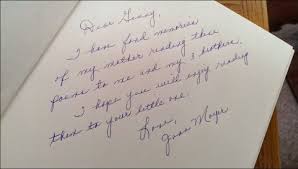 Dear Ginny,
I have fond memories
of my mother reading these
poems to me and my 3 brothers.
I hope you will enjoy reading
them to your little one.
Love,
Joan